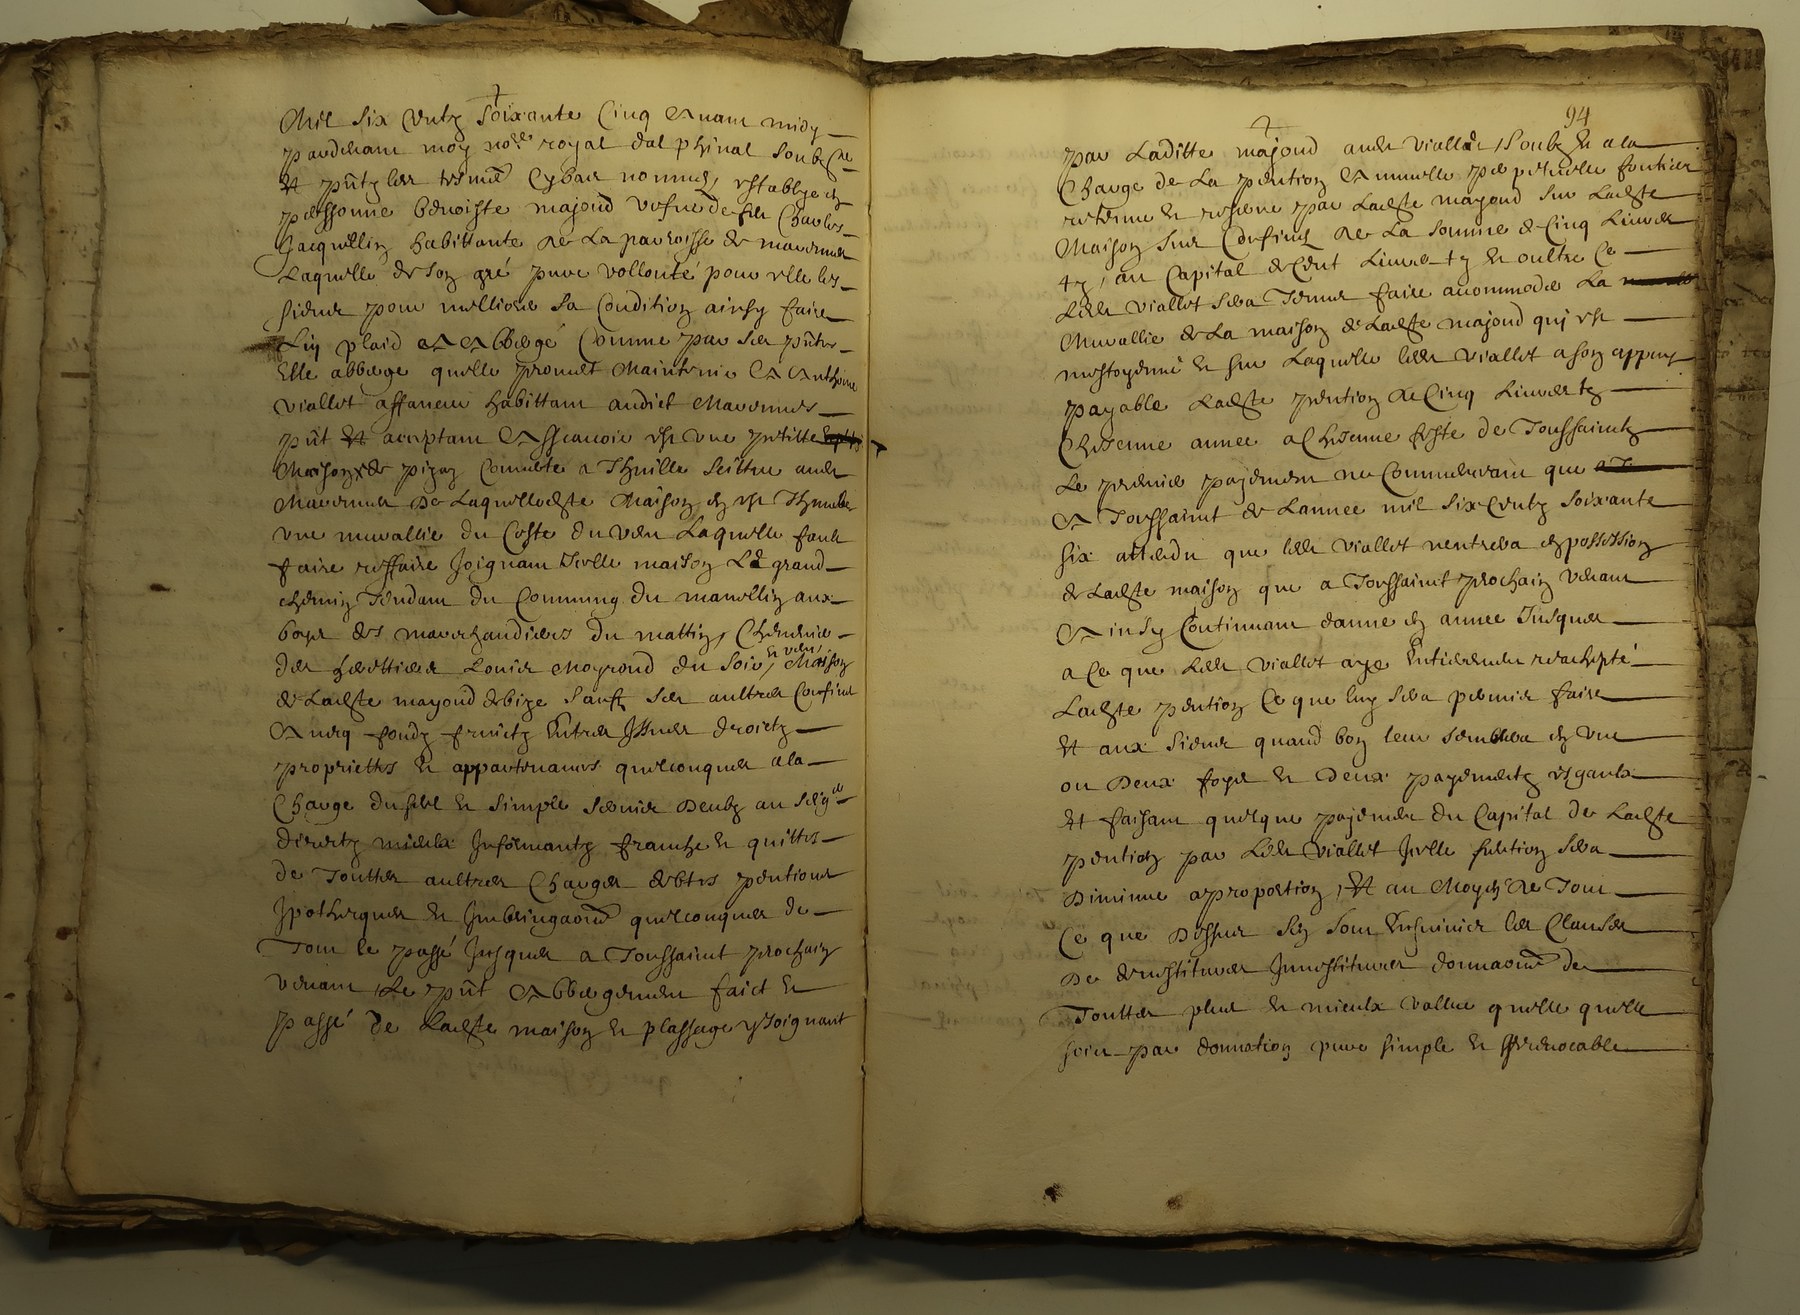 Mil six centz soixante cinq & avant midy
pardevant moy no.re royal dalphinal soubz.né
et p̃ntz les tesmoins cy bas nommes, establye en
personne benoiste majoud vefve de feu Charles
Jacquellin habittante de la parroisse de marennes
Laquelle de son gré pure vollonté pour elle les
siens pour mellieure sa condition ainsy faire
Luy plaid a abbergé comme par ses p̃ntes
Elle abberge quelle promet maintenir a anthoine
viallet affaneur habittant audict Marennes
p̃nt et acceptant assçavoir est une petitte
Maison de pizay couverte a thuille scittue aud
Marennes de laquelle ditte Maison en est
une muraillie du coste du vent laquelle fault
faire reffaire Joignant icelle maison Le grand
chemin tendant du commung du mavellin aux
boys des marchandieres du mattin, Chenevier
des herettiers Louis Moyroud du soir, et vent, Maison
de laditte mayoud de bize sauf ses aultres confins
Avecq fondz fruictz entrees Issues droictz
proprietes et appartenances quelconques a la
Charge du servis et simple deubz au seig.r
directz mieulx Informantz franche et quitte
de touttes aultres charges debtes pentions
Ipotheques et quelconques de
Tout le passé Jusques a Toussaint prochain
venant, Le p̃nt Abbergement faict et
passé de laditte maison et plassage y Joignant
94
par Laditte majoud aud viallet, soubz et a la
Charge de la pention annuelle perpetuelle fontiere
retenue et reservee par laditte mayoud sur laditte
Maison sus confinee de la somme de Cinq Livres
tz, au Capital de Cent Livres tz et oultre ce
Led viallet sera tenu faire accommoder La
Muraillie de la maison de laditte majoud qui est
mestoyenne et sur laquelle led viallet a son appuy
payable laditte pention de Cinq Livres tz
Chescune annee a chescune feste de Toussaintz
Le premier payement ne commencera que
A Toussaint de Lannee mil six centz soixante
six attendu que led viallet nentrera en possession
de laditte maison que a Toussaint prochain venant
Ainsy Continuant dannee en annee Jusques
a ce que led viallet aye entierement rachepté
Laditte pention ce que luy sera permis faire
Et aux siens quand bon leur semblera en une
ou deux foys et deux payementz esgaulx
Et faisant quelque payement du Capital de laditte
pention par led viallet Icelle pention sera
Diminue a proportion, Et au Moyen de Tout
Ce que dessus sen sont ensuivies les Clauses
De devestitures Investitures donnaons de
Touttes plus et mieulx vallue quelle quelle
soit par donnation pure simple et Irrevocable